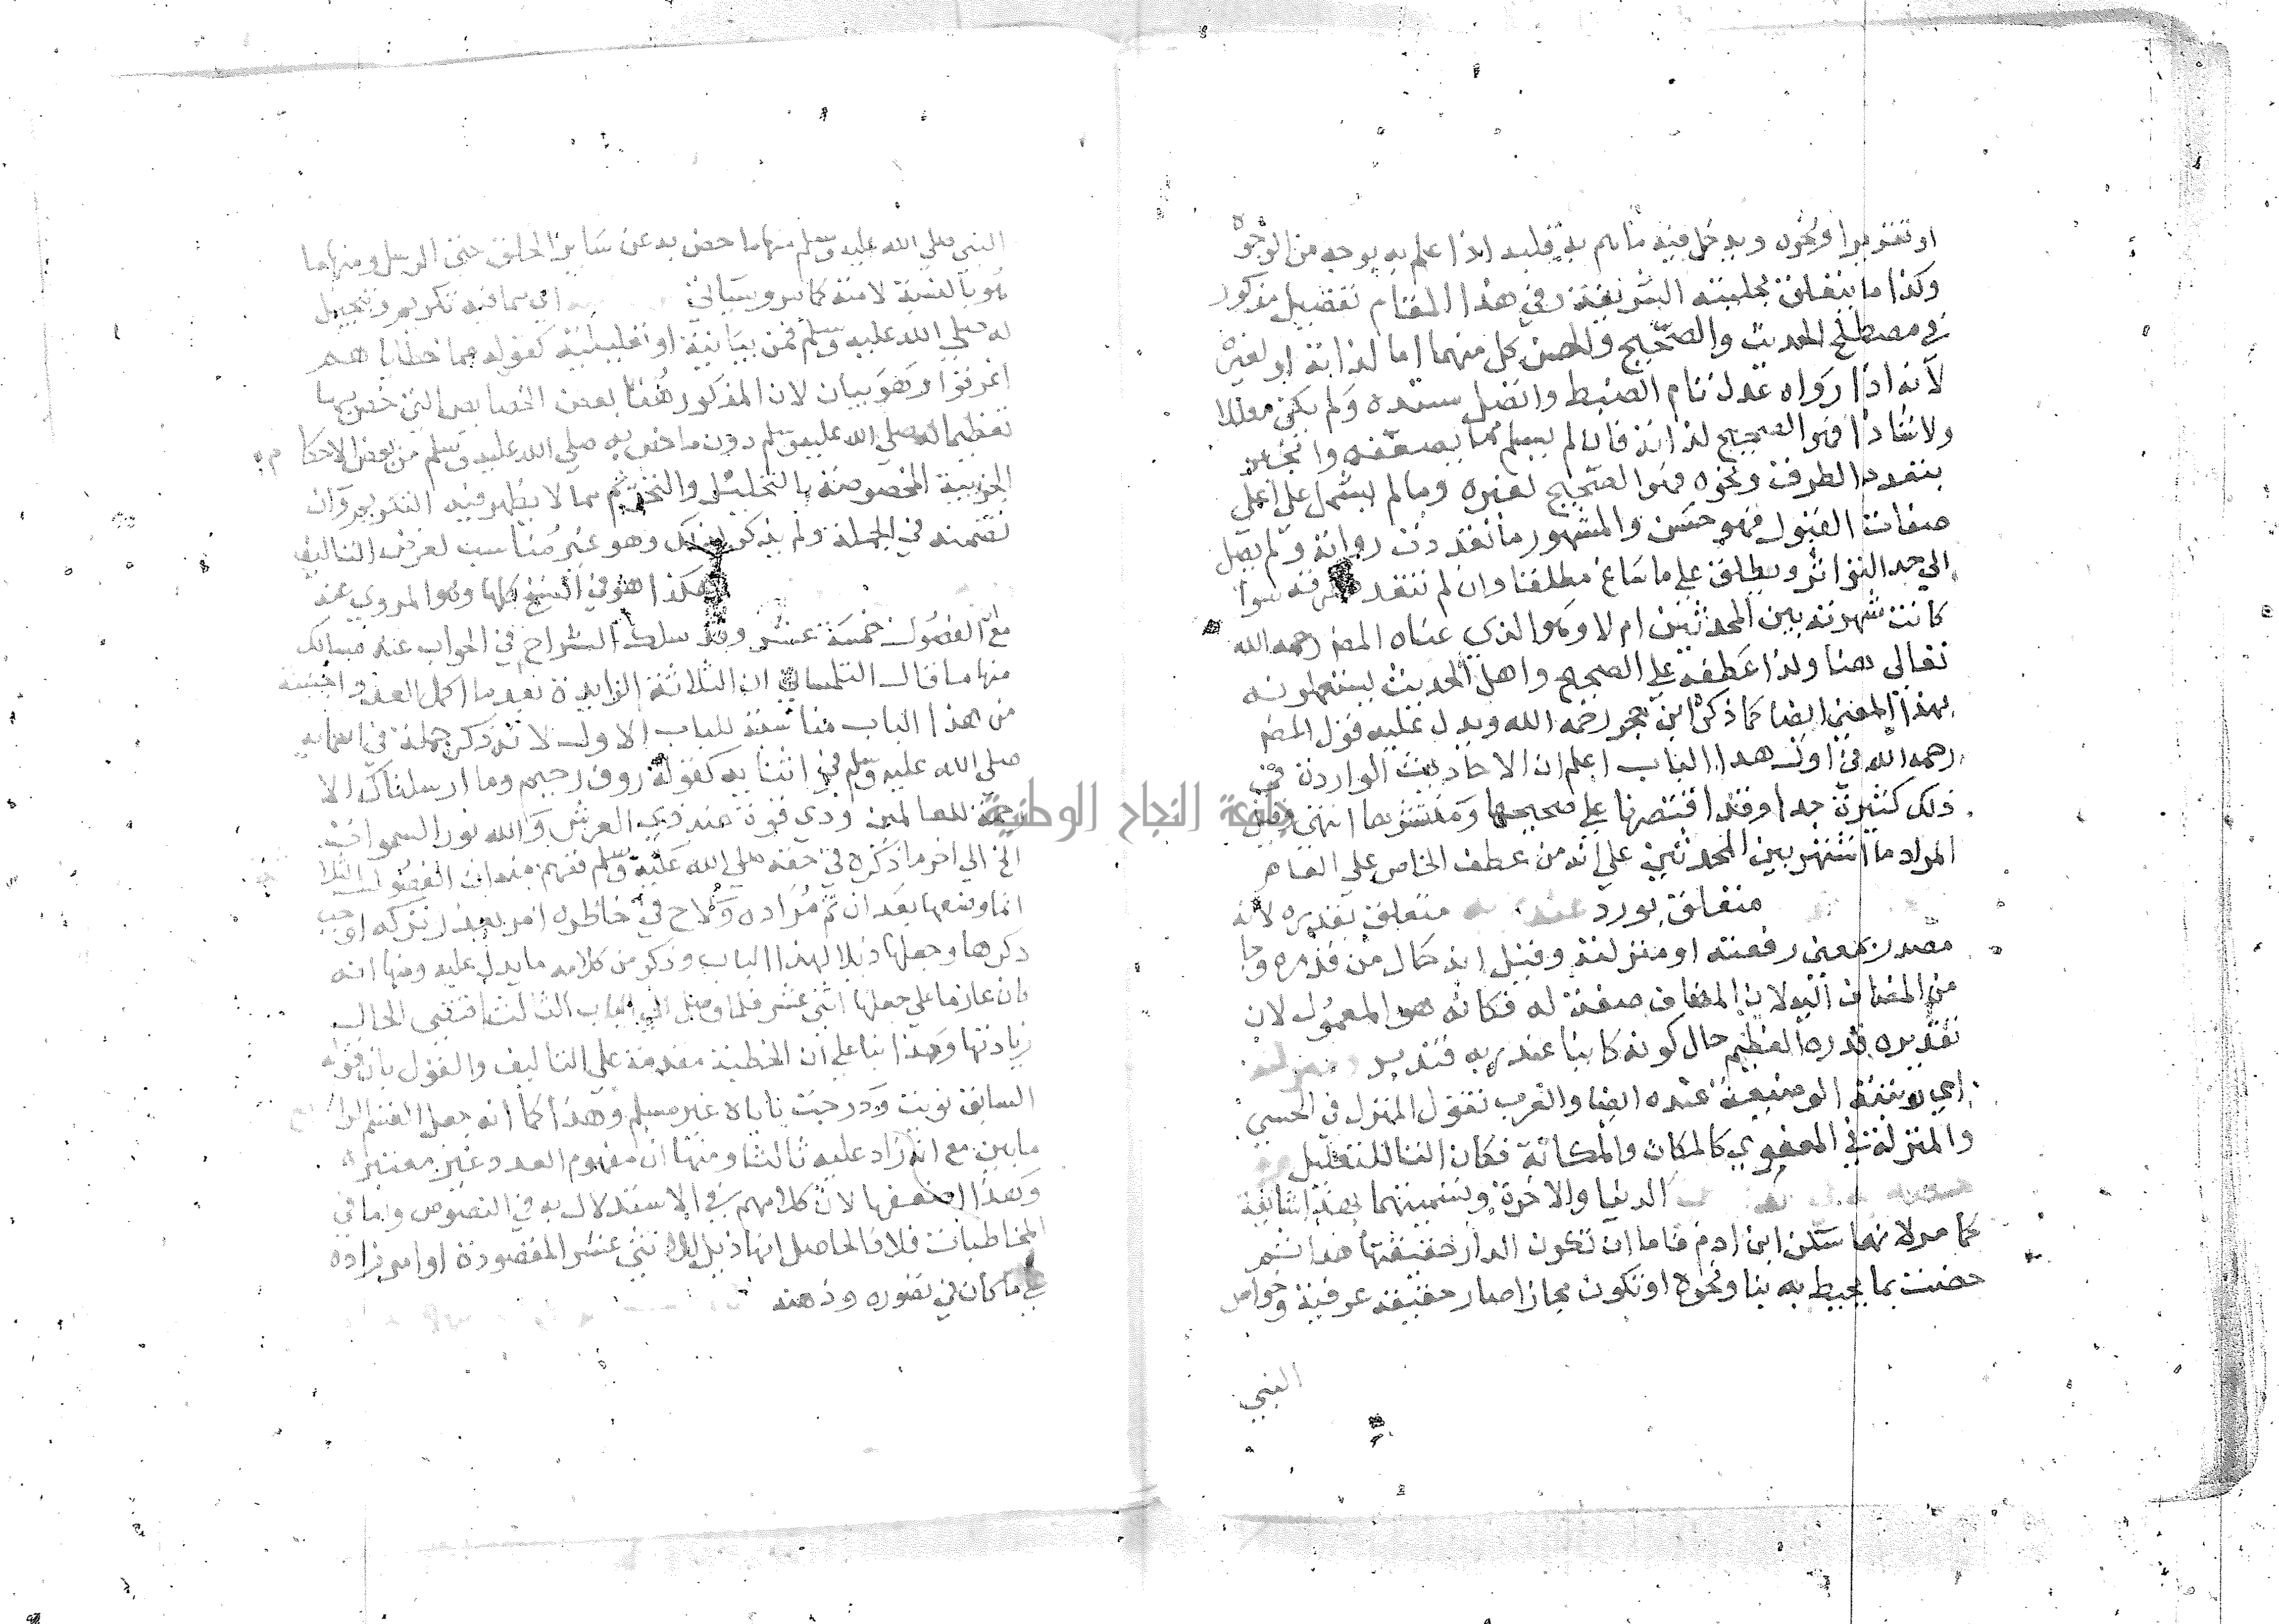 او تقريرا ونحوه ويدخل فيه ما هم به قلبه اذا علم به بوجه من الوجوه
وكذا ما يتعلق بحليته الشريفة وفي هذا المقام تفصيل مذكور
في مصطلح الحديث والصحيح والحسن كل منهما اما لذاته او لغيره
لانه اذا رواه عدل تام الضبط واتصل سنده ولم يكن معللا
ولا شاذا فهو الصحيح لذاته فان لم يسلم مما يضعفه وانجبر
بتعدد الطرق ونحوه فهو الصحيح لغيره وما لم يشتمل على اعلى
صفات القبول فهو حسن والمشهور ما تعددت رواته ولم يصل
الى حد التواتر ويطلق على ما شاع مطلقا وان لم تتعدد طرقه سوا
كانت شهرته بين المحدثين ام لا وهو الذي عناه المص رحمه الله
تعالى هنا ولذا عطفه على الصحيح واهل الحديث يستعملونه
بهذا المعنى ايضا كما ذكره ابن حجر رحمه الله ويدل عليه قول المص
رحمه الله في اول هذا الباب اعلم ان الاحاديث الواردة في
ذلك كثيرة جدا وقد اقتصرنا على صحيحها ومنتشرها انتهى وقيل
المراد ما اشتهر بين المحدثين على انه من عطف الخاص على العام
متعلق بورد عند ربه متعلق بقدره لانه
مصدر بمعنى رفعته او منزلته وقيل انه حال من قدره وجا
من المضاف اليه لان المضاف صفة له فكانه هو المعمول لان
تقديره قدره العظيم حال كونه كاينا عند ربه فتدبر ومنزلته
اي رتبته الرفيعة عنده ايضا والعرب تقول المنزل في الحسي
والمنزلة في المعنوي كالمكان والمكانة فكان التا للتقليل
الدنيا والاخرة وتسميتهما بهذا شايعة
كما مر لانهما سكن ابن ادم فاما ان تكون الدار حقيقتها هذا ثم
خصت بما يحيط به بنا ونحوه او تكون مجازا صار حقيقة عرفية وخواص
النبي
النبي صلي الله عليه وسلم منها ما خص به عن ساير الخلق حتى الرسل ومنها ما
هو بالنسبة لامته كما مر وسياتي اي مما فيه تكريم وتبجيل
له صلي الله عليه وسلم فمن بيانية او تعليلية كقوله مما خطاياهم
اغرقوا وهو بيان لان المذكور هنا بعض الخصايص التي خص بها
تعظيما له صلى الله عليه وسلم دون ما خص به صلي الله عليه وسلم من بعض الاحكام
الجزيية المخصوصة بالتحليل والتحريم مما لا يظهر فيه التكريم وان
تضمنه في الجملة ولم يذكر ذلك وهو غير مناسب لغرض التاليف
هكذا هو في النسخ كلها وهو المروي عنه
مع ان الفصول خمسة عشر وقد سلك الشراح في الجواب عنه مسالك
منها ما قال التلمساني ان الثلاثة الزايدة بعد ما اكمل العدد اجنبية
من هذا الباب مناسبة للباب الاول لانه ذكر جملة في اسمايه
صلي الله عليه وسلم في اثنايه كقوله روف رحيم وما ارسلناك الا
رحمة للعالمين وذي قوة عند ذي العرش والله نور السموات
الخ الى اخر ما ذكره في حقه صلي الله عليه وسلم ففهم منه ان الفصول الثلاثة
انما وضعها بعد ان تم مراده ولاح في خاطره امر بعد ان تركه اوجب
ذكرها وجعلها ذيلا لهذا الباب وذكر من كلامه ما يدل عليه ومنها انه
كان عازما على جعلها اثنى عشر فلما وصل الى الباب الثالث اقتضى الحال
زيادتها وهذا بنا على ان الخطبة مقدمة على التاليف والقول بان قوله
السابق بوبت ودرجت ياباه غير مسلم وهذا كما انه جعل القسم الرابع
مابين مع انه زاد عليه ثالثا ومنها ان مفهوم العدد غير معتبر
وهذا اضعفها لان كلامهم في الاستدلال به في النصوص واما في
المخاطبات فلا فالحاصل انها ذيل للاثنى عشر المقصودة او امر زاده
على ما كان في تصوره وذهنه
جامعة النجاح الوطنية